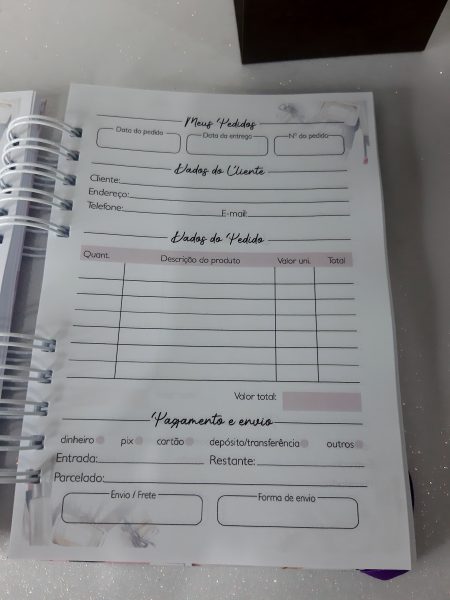 Meus Pedidos
Data do pedido Data da entrega Nº do pedido
Dados do Cliente
Cliente:
Endereço:
Telefone: E-mail:
Dados do Pedido
Quant. Descrição do produto Valor uni. Total
Valor total:
Pagamento e envio
dinheiro pix cartão depósito/transferência outros
Entrada: Restante:
Parcelado:
Envio / Frete Forma de envio